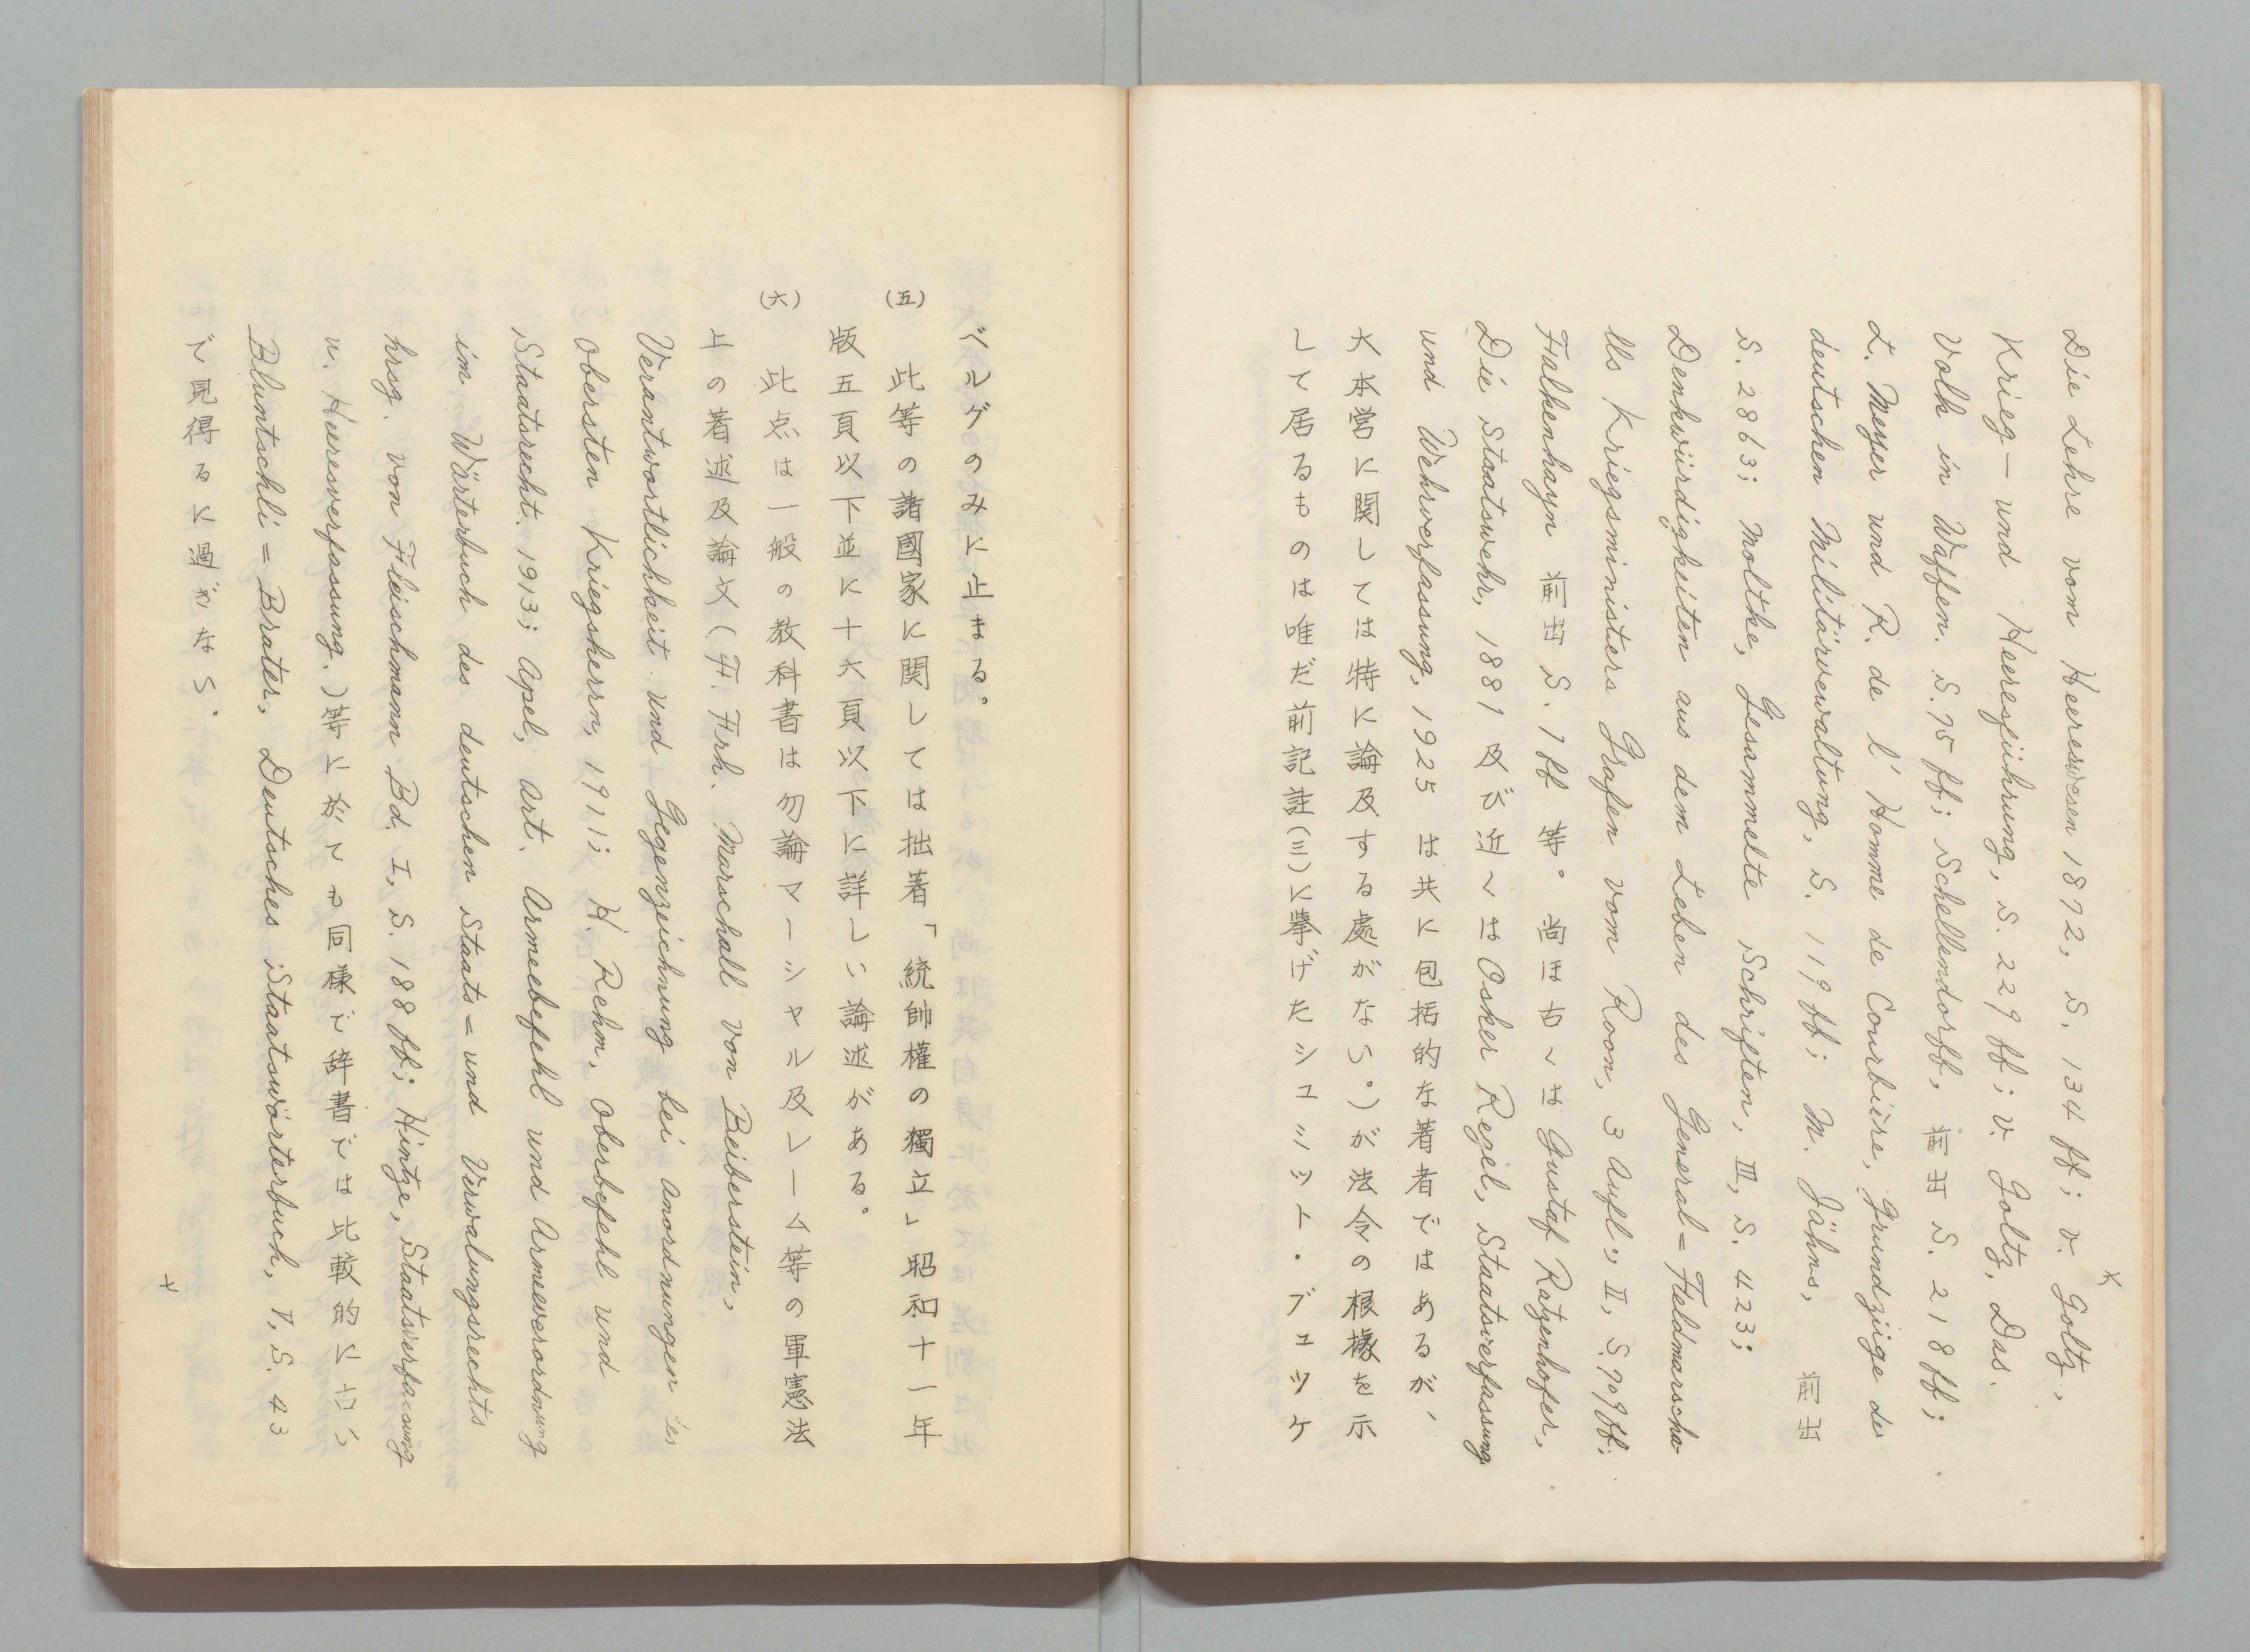 六
Die Lehre vom Heereswesen 1872, S. 134 ff; v. Goltz,
Krieg- und Heeresführung, S. 229 ff; v. Goltz, Das.
Volk in Waffen. S. 75 ff; Schellendorff, 前出 S. 218 ff;
L. Meyer und R. de l'Homme de Courbière, Grundzüge der
deutschen Militärverwaltung, S. 119 ff; M. Jähns, 前出
S. 2863; Moltke, Gesammelte Schriften, III, S. 423;
Denkwürdigkeiten aus dem Leben des General=Feldmarscha
lls Kriegsministers Grafen vom Roon, 3 Aufl., II, S. 909 ff;
Falkenhayn 前出 S. 1 ff 等。尚ほ古くは Gustaf Ratzenhofer,
Die Staatswehr, 1881 及び近くは Osker Regel, Staatsverfassung
und Wehrverfassung, 1925 は共に包括的な著者ではあるが、
大本営に関しては特に論及する處がない。)が法令の根據を示
して居るものは唯だ前記註(三)に擧げたシュミット・ブュッケ
ベルグのみに止まる。
(五) 此等の諸國家に関しては拙著「統帥權の獨立」昭和十一年
版五頁以下並に十六頁以下に詳しい論述がある。
(六) 此点は一般の教科書は勿論マーシャル及レーム等の軍憲法
上の著述及論文(F. Frh. Marschall von Beiberstein,
Verantwortlichkeit und Gegenzeichnung bei Anordnungen des
Obersten Kriegsherrn, 1911; H. Rehm, Oberbefehl und
Staatsrecht. 1913; Apel, Art. Armeebefehl und Armeeverordnung
im Wärterbuch des deutschen Staats=und Verwalungsrechts
hrsg. von Fleischmann Bd. I, S. 188 ff; Hintze, Staatsverfassung
u. Heeresverfassung.)等に於ても同様で辞書では比較的に古い
Bluntschli=Brater, Deutsches Staatswörterbuch, V, S. 43
で見得るに過ぎない。
七